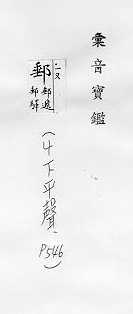 彙音寶鑑
二又
郵
郵遞
郵驛
(4下平聲,P546)